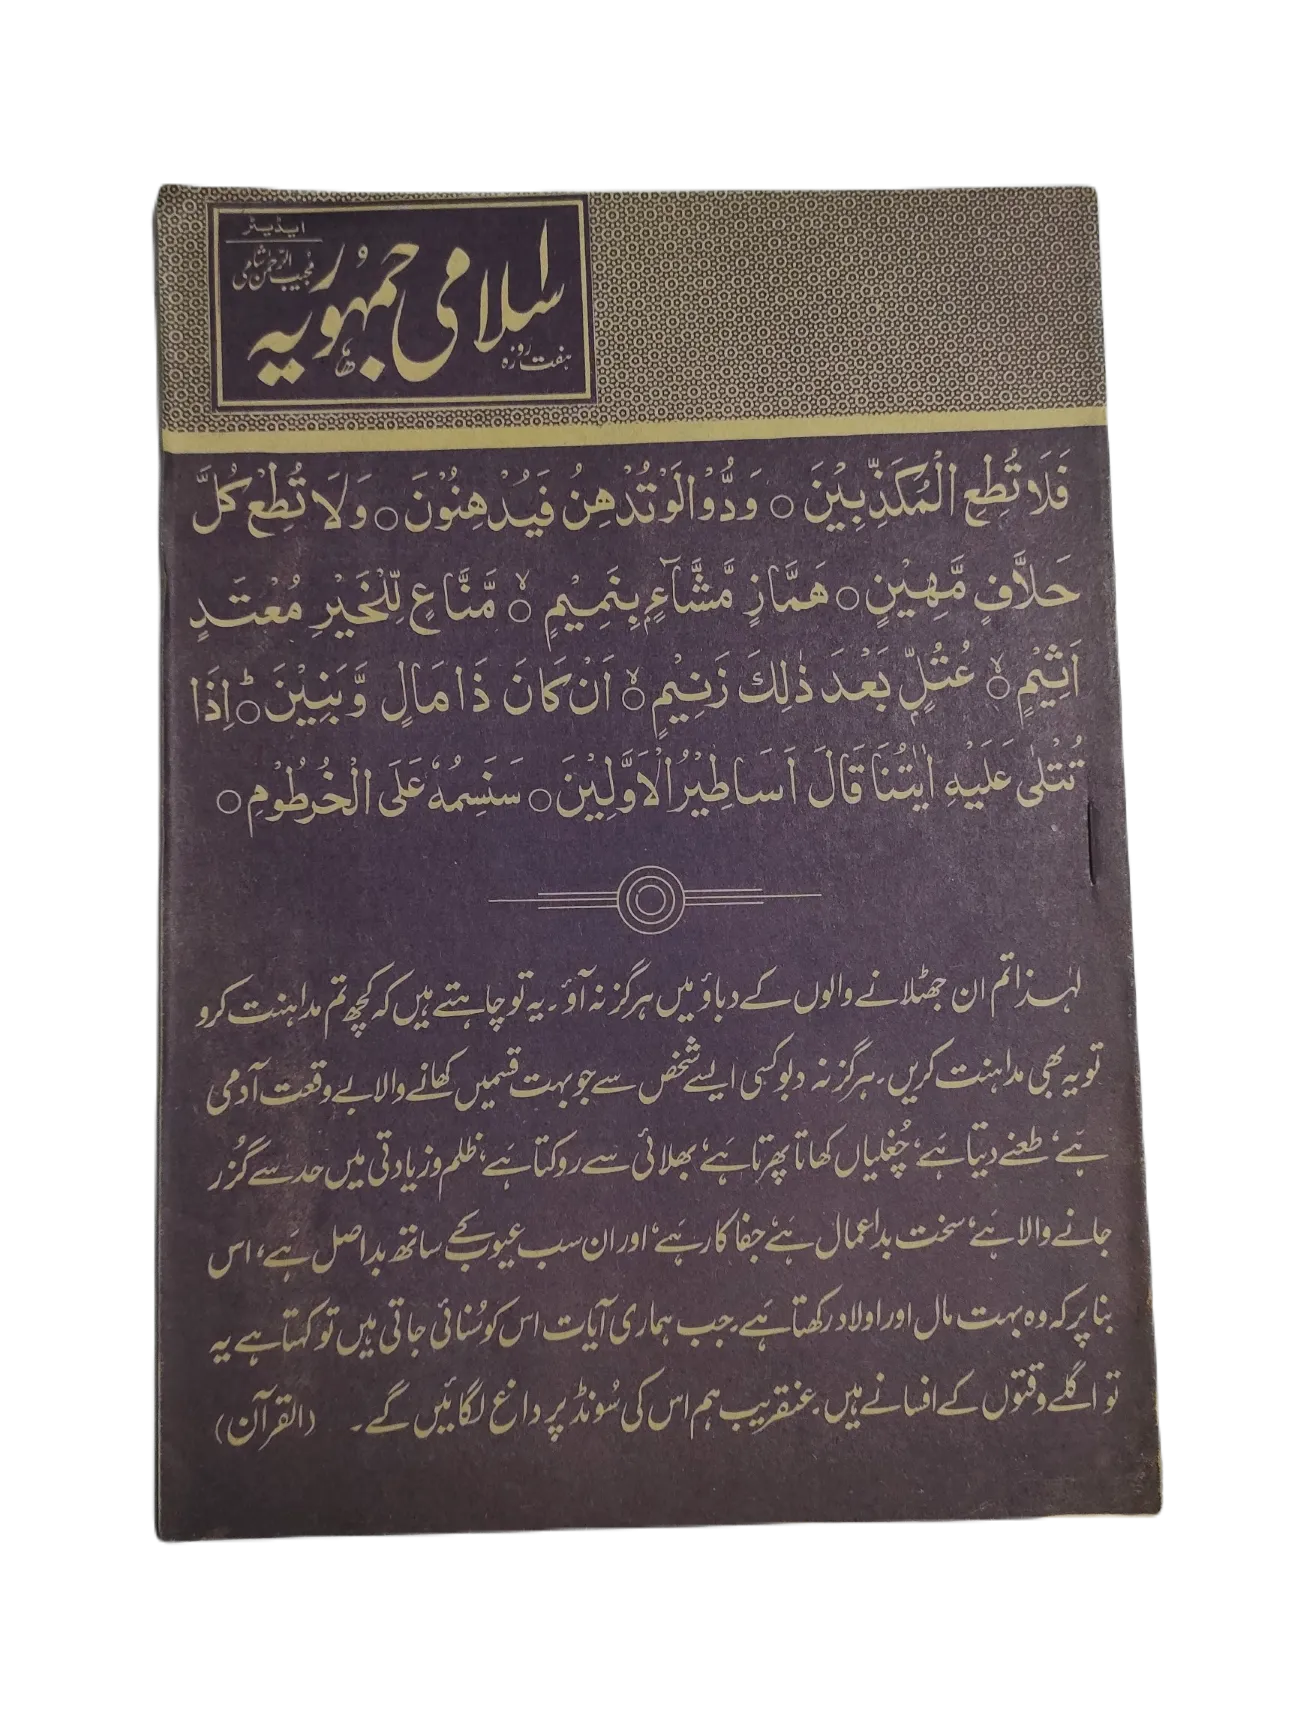 ایڈیٹر
مجیب الرحمٰن شامی
اسلامی جمہوریہ
ہفت روزہ
فَلَا تُطِعِ الْمُكَذِّبِيْنَ ○ وَدُّوْا لَوْ تُدْهِنُ فَيُدْهِنُوْنَ ○ وَلَا تُطِعْ كُلَّ
حَلَّافٍ مَّهِيْنٍ ○ هَمَّازٍ مَّشَّآءٍ بِنَمِيْمٍ ○ۙ مَّنَّاعٍ لِّلْخَيْرِ مُعْتَدٍ
اَثِيْمٍ ○ۙ عُتُلٍّ بَعْدَ ذٰلِكَ زَنِيْمٍ ○ۙ اَنْ كَانَ ذَا مَالٍ وَّ بَنِيْنَ ○ؕ اِذَا
تُتْلٰى عَلَيْهِ اٰيٰتُنَا قَالَ اَسَاطِيْرُ الْاَوَّلِيْنَ ○ سَنَسِمُهٗ عَلَى الْخُرْطُوْمِ ○
لہٰذا تم ان جھٹلانے والوں کے دباؤ میں ہرگز نہ آؤ۔ یہ تو چاہتے ہیں کہ کچھ تم مداہنت کرو
تو یہ بھی مداہنت کریں۔ ہرگز نہ دبو کسی ایسے شخص سے جو بہت قسمیں کھانے والا بے وقعت آدمی
ہے، طعنے دیتا ہے، چُغلیاں کھاتا پھرتا ہے، بھلائی سے روکتا ہے، ظلم و زیادتی میں حد سے گُزر
جانے والا ہے، سخت بداعمال ہے، جفاکار ہے، اور ان سب عیوب کے ساتھ بداصل ہے، اس
بنا پر کہ وہ بہت مال اور اولاد رکھتا ہے۔ جب ہماری آیات اس کو سُنائی جاتی ہیں تو کہتا ہے یہ
تو اگلے وقتوں کے افسانے ہیں۔ عنقریب ہم اس کی سُونڈ پر داغ لگائیں گے۔ (القرآن)